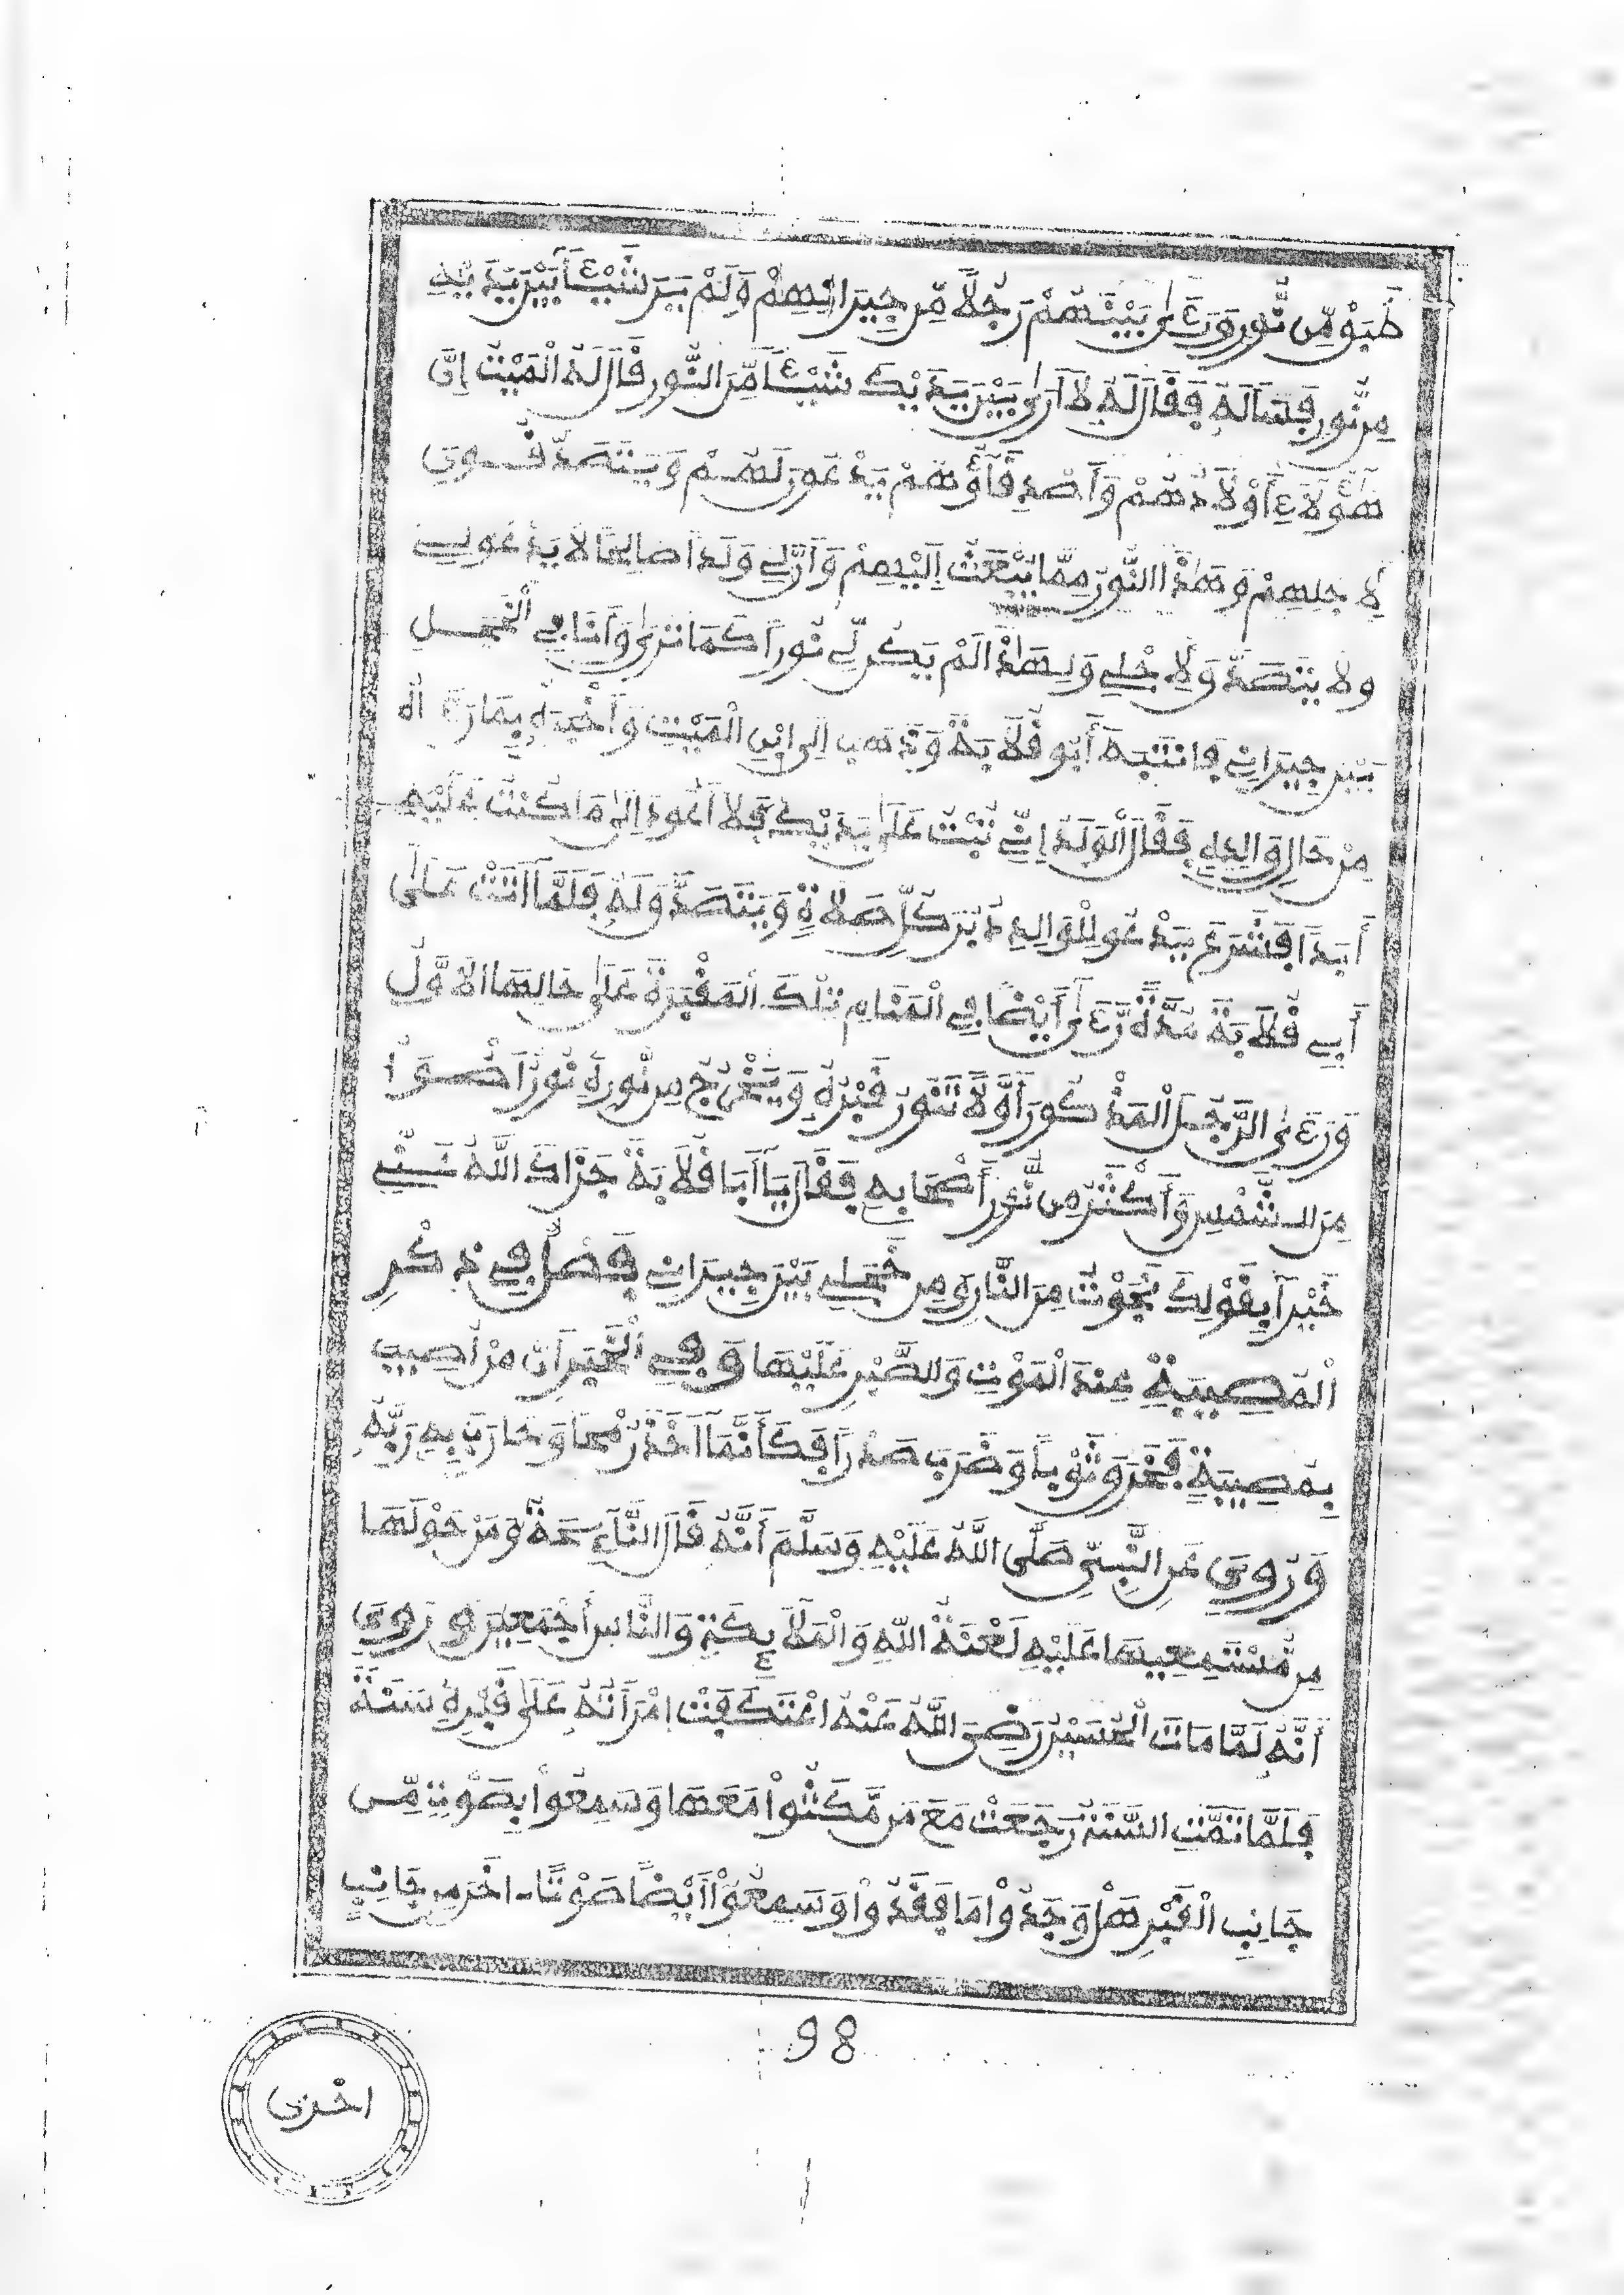 طَبَقٌ مِّن نُّورٍ وَرَءَىٰ بَيْنَهُمْ رَجُلًا مِّن جِيرَانِهِمْ وَلَمْ يَرَ شَيْـًٔا بَيْنَ يَدَيْهِ
مِن نُّورٍ فَسَأَلَهُ فَقَالَ لَهُ لَا أَرَىٰ بَيْنَ يَدَيْكَ شَيْـًٔا مِّنَ النُّورِ قَالَ لَهُ الْمَيِّتُ إِنَّ
هَٰؤُلَاءِ أَوْلَادُهُمْ وَأَصْدِقَاؤُهُمْ يَدْعُونَ لَهُمْ وَيَتَصَدَّقُونَ
لِأَجْلِهِمْ وَهَٰذَا النُّورُ مِمَّا يُبْعَثُ إِلَيْهِمْ وَأَنَّ لِي وَلَدًا صَالِحًا لَا يَدْعُو لِي
وَلَا يَتَصَدَّقُ لِأَجْلِي وَلِهَٰذَا لَمْ يَكُن لِّي نُورًا كَمَا تَرَىٰ وَأَنَا فِي الْخَجَلِ
بَيْنَ جِيرَانِي فَانْتَبَهَ أَبُو قِلَابَةَ وَذَهَبَ إِلَى ابْنِ الْمَيِّتِ وَأَخْبَرَهُ بِمَا رَءَاهُ
مِنْ حَالِ وَالِدِهِ فَقَالَ الْوَلَدُ إِنِّي تُبْتُ عَلَىٰ يَدَيْكَ فَلَا أَعُودُ إِلَىٰ مَا كُنْتُ عَلَيْهِ
أَبَدًا فَشَرَعَ يَدْعُو لِلْوَالِدِ دُبُرَ كُلِّ صَلَاةٍ وَيَتَصَدَّقُ لَهُ فَلَمَّا أَتَتْ عَلَىٰ
أَبِي قِلَابَةَ مُدَّةٌ رَّءَىٰ أَيْضًا فِي الْمَنَامِ تِلْكَ الْمَقْبَرَةَ عَلَىٰ حَالِهَا الْأَوَّلِ
وَرَءَى الرَّجُلَ الْمَذْكُورَ أَوَّلًا تَنَوَّرَ قَبْرُهُ وَيَخْرُجُ مِن نُّورِهِ نُورٌ أَضْوَأُ
مِنَ الشَّمْسِ وَأَكْثَرُ مِن نُّورِ أَصْحَابِهِ فَقَالَ يَا أَبَا قِلَابَةَ جَزَاكَ اللَّهُ عَنِّي
خَيْرًا بِقَوْلِكَ نَجَوْتُ مِنَ النَّارِ وَمِن خَجَلِي بَيْنَ جِيرَانِي فَصْلٌ فِي ذِكْرِ
الْمُصِيبَةِ عِنْدَ الْمَوْتِ وَالصَّبْرِ عَلَيْهَا وَفِي الْخَبَرِ أَنَّ مَنْ أُصِيبَ
بِمُصِيبَةٍ فَخَرَقَ ثَوْبًا وَضَرَبَ صَدْرًا فَكَأَنَّمَا أَخَذَ رُمْحًا وَحَارَبَ بِهِ رَبَّهُ
وَرُوِيَ عَنِ النَّبِيِّ صَلَّى اللَّهُ عَلَيْهِ وَسَلَّمَ أَنَّهُ قَالَ النَّائِحَةُ وَمَنْ حَوْلَهَا
مِن مُّسْتَمِعِيهَا عَلَيْهِ لَعْنَةُ اللَّهِ وَالْمَلَائِكَةِ وَالنَّاسِ أَجْمَعِينَ وَرُوِيَ
أَنَّهُ لَمَّا مَاتَ الْحُسَيْنُ رَضِيَ اللَّهُ عَنْهُ اعْتَكَفَتْ امْرَأَتُهُ عَلَىٰ قَبْرِهِ سَنَةً
فَلَمَّا تَمَّتِ السَّنَةُ رَجَعَتْ مَعَ مَن مَّكَثُوا مَعَهَا وَسَمِعُوا بِصَوْتٍ مِّن
جَانِبِ الْقَبْرِ هَلْ وَجَدُوا مَا فَقَدُوا وَسَمِعُوا أَيْضًا صَوْتًا اخَرَ مِن جَانِبٍ
98
اخرى